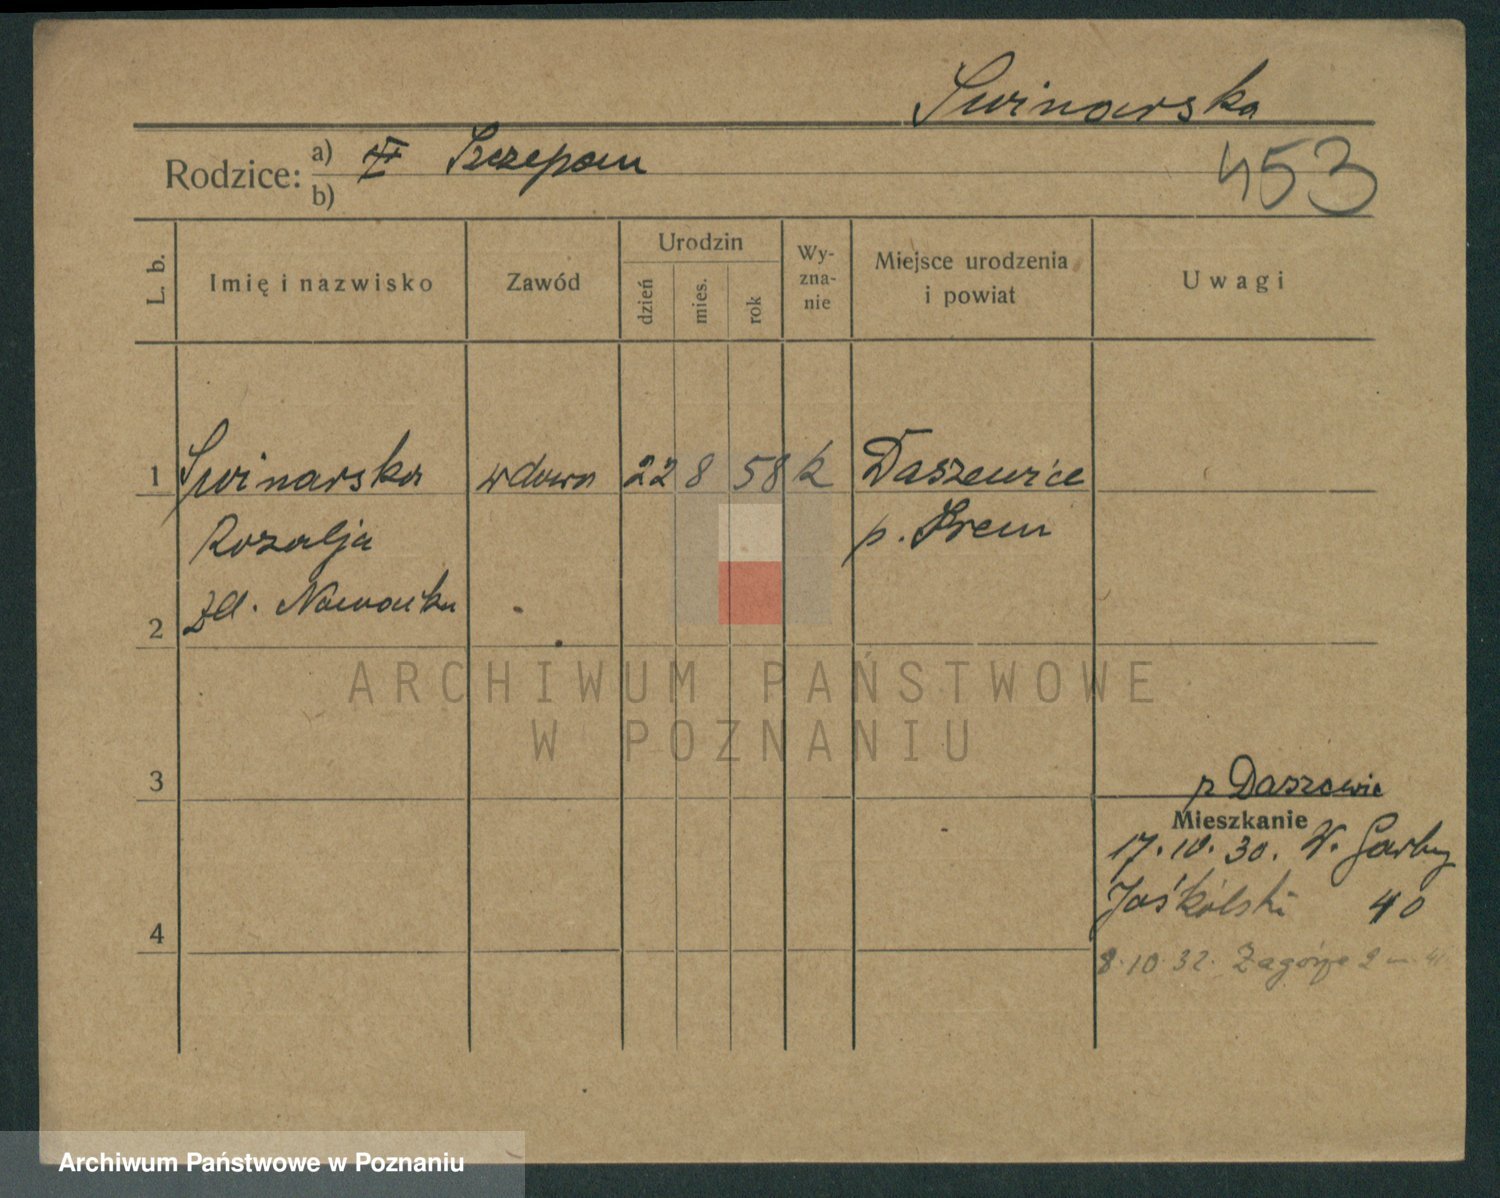 Swinarska
Rodzice: a) Szczepan
b)
453
L. b. Imię i nazwisko Zawód Urodzin dzień mies. rok Wy-zna-nie Miejsce urodzenia i powiat Uwagi
1 Swinarska wdowa 22 8 58 k Daszewice
Rozalja p. Śrem
2 zd. Nowacka
ARCHIWUM PAŃSTWOWE
W POZNANIU
3
z Daszewic
Mieszkanie
17.10.30. W. Garbary
Jaśkólski 40
4
8.10.32. Zagórze 2 m.
Archiwum Państwowe w Poznaniu